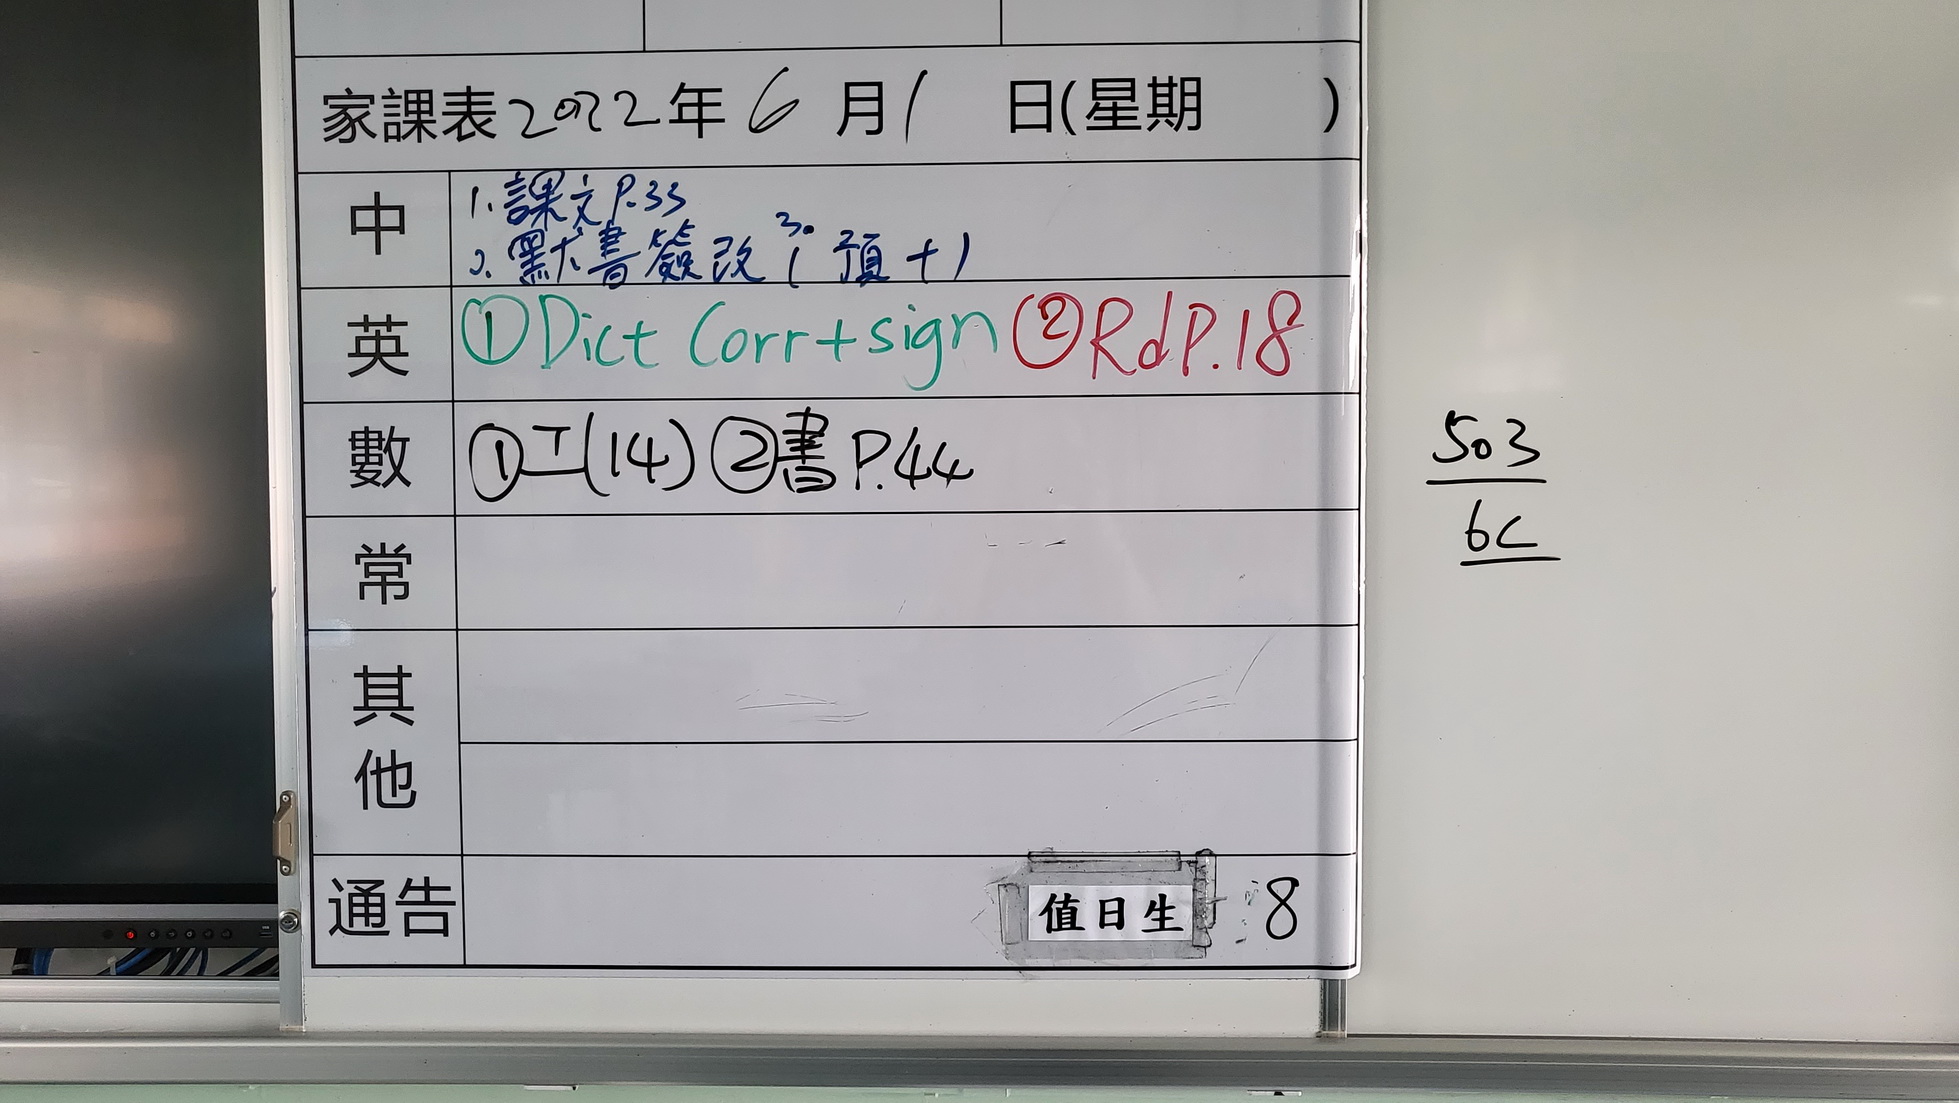 家課表2022年6月1日(星期 )
中 1. 課文P.33
2. 默書簽改 3. 預十
英 ①Dict Corr+sign ②RdP.18
數 ①工(14) ②書P.44
常
其他
通告 值日生:8
503
6C